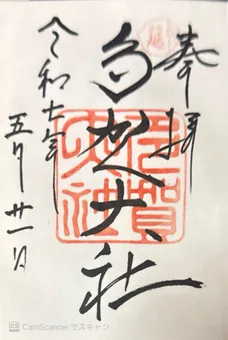 奉拝
多賀大社
多賀
大社
令和七年
五月廿一日
CS CamScannerでスキャン